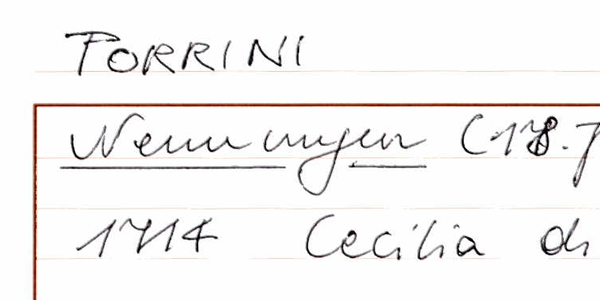 PORRINI
Nennungen (18.J
1714 Cecilia di